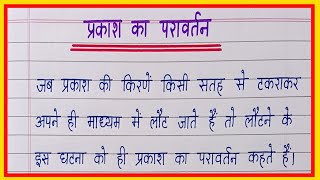 प्रकाश का परावर्तन
जब प्रकाश की किरणें किसी सतह से टकराकर
अपने ही माध्यम में लौट जाते हैं तो लौटने के
इस घटना को ही प्रकाश का परावर्तन कहते हैं।